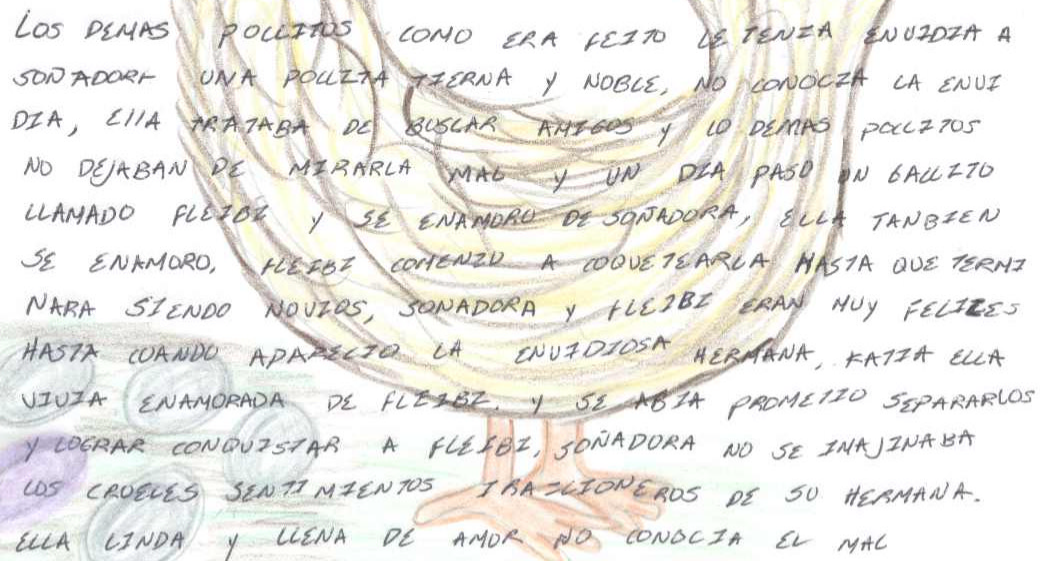 LOS DEMAS POLLITOS COMO ERA FEITO LE TENIA ENVIDIA A
SOÑADORA UNA POLLITA TIERNA Y NOBLE, NO CONOCIA LA ENVI
DIA, ELLA TRATABA DE BUSCAR AMIGOS Y LO DEMAS POLLITOS
NO DEJABAN DE MIRARLA MAL Y UN DIA PASO UN GALLITO
LLAMADO FLEIBI Y SE ENAMORO DE SOÑADORA, ELLA TANBIEN
SE ENAMORO, FLEIBI COMENZO A COQUETEARLA HASTA QUE TERMI
NARA SIENDO NOVIOS, SONADORA Y FLEIBI ERAN MUY FELICES
HASTA CUANDO APARECIO LA ENVIDIOSA HERMANA, KATIA ELLA
VIVIA ENAMORADA DE FLEIBI, Y SE ABIA PROMETIO SEPARARLOS
Y LOGRAR CONQUISTAR A FLEIBI, SOÑADORA NO SE IMAJINABA
LOS CRUELES SENTIMIENTOS TRAICIONEROS DE SU HERMANA.
ELLA LINDA Y LLENA DE AMOR NO CONOCIA EL MAL